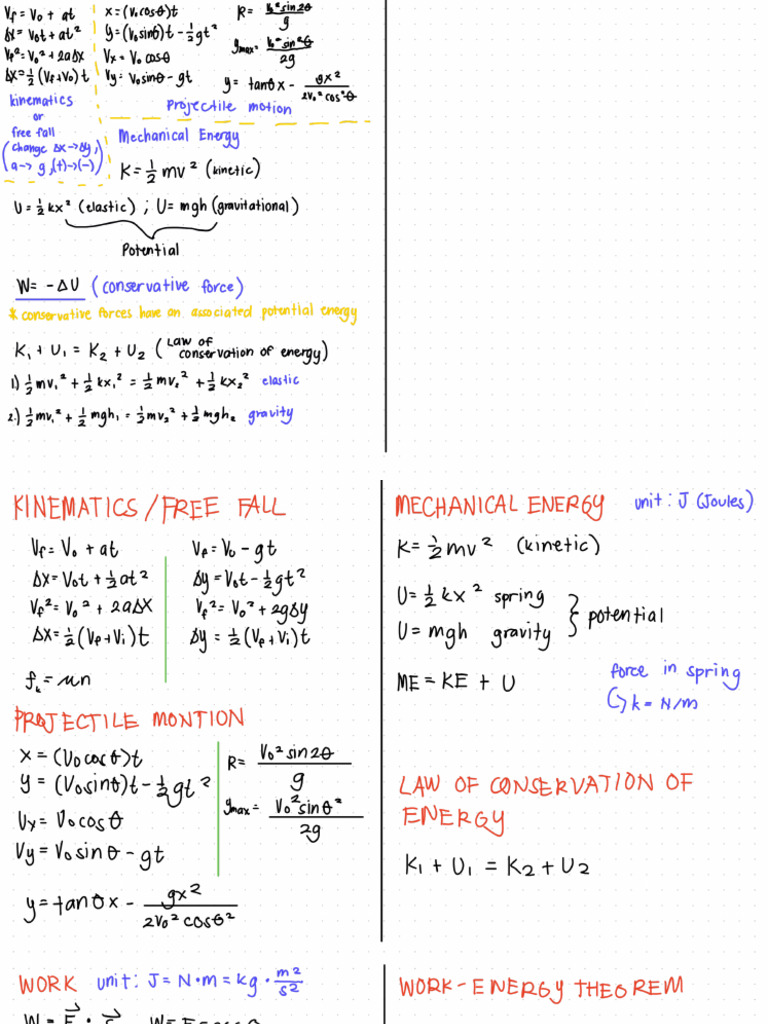 Vf = Vo + at
Δx = Vot + at²
Vf² = Vo² + 2aΔx
Δx = ½ (Vf + Vo) t
kinematics
or
free fall
(change Δx → Δy,
a → g, (+) → (-))
x = (Vo cosθ)t
y = (Vo sinθ)t - ½gt²
Vx = Vo cosθ
Vy = Vo sinθ - gt
R = Vo² sin2θ / g
ymax = Vo² sin²θ / 2g
y = tanθx - gx² / 2Vo² cos²θ
Projectile motion
Mechanical Energy
K = ½ mv² (kinetic)
U = ½ kx² (elastic) ; U = mgh (gravitational)
Potential
W = -ΔU (conservative force)
* conservative forces have an associated potential energy
K₁ + U₁ = K₂ + U₂ (Law of conservation of energy)
1) ½ mv₁² + ½ kx₁² = ½ mv₂² + ½ kx₂² elastic
2.) ½ mv₁² + ½ mgh₁ = ½ mv₂² + ½ mgh₂ gravity
KINEMATICS / FREE FALL
Vf = Vo + at
Δx = Vot + ½at²
Vf² = Vo² + 2aΔX
Δx = ½ (Vf + Vi) t
fk = μn
Vf = Vo - gt
Δy = Vot - ½gt²
Vf² = Vo² + 2gΔy
Δy = ½ (Vf + Vi) t
PROJECTILE MONTION
x = (Vo cosθ)t
y = (Vo sinθ)t - ½gt²
Vx = Vo cosθ
Vy = Vo sinθ - gt
y = tanθx - gx² / 2Vo² cosθ²
R = Vo² sin2θ / g
ymax = Vo² sinθ² / 2g
MECHANICAL ENERGY unit: J (Joules)
K = ½ mv² (kinetic)
U = ½ kx² spring
U = mgh gravity
potential
ME = KE + U
force in spring
↳ k = N/m
LAW OF CONSERVATION OF
ENERGY
K₁ + U₁ = K₂ + U₂
WORK unit: J = N•m = kg • m²/s²
WORK - ENERGY THEOREM